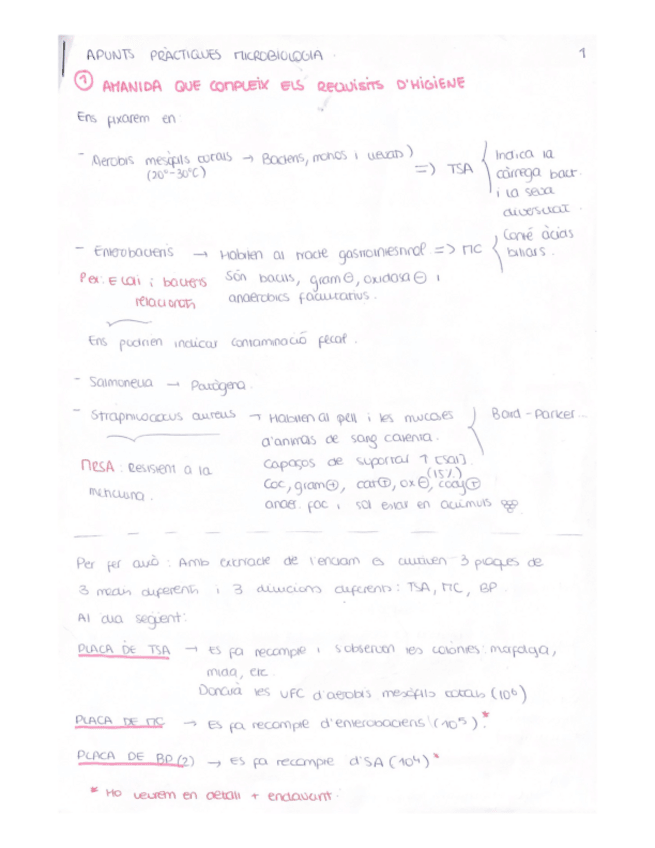 APUNTS PRÀCTIQUES MICROBIOLOGIA. 1
① AMANIDA QUE COMPLEIX ELS REQUISITS D'HIGIENE
Ens fixarem en:
- Aerobis mesòfils totals → Bacteris, monos i llevats) => TSA { Indica la
(20º-30ºC) càrrega bact.
i la seva
diversitat.
- Enterobacteris → Habiten al tracte gastrointestinal => MC { Conté àcids
biliars.
Per: E. coli i bacteris Són bacils, gram ⊖, oxidasa ⊖ i
relacionats anaeròbics facultatius.
Ens podrien indicar contaminació fecal.
- Salmonella → Patògena.
- Straphilococcus aureus → Habiten al pell i les mucoses { Baird-Parker...
d'animals de sang calenta.
MRSA: Resistent a la capaços de suportar ↑ [sal].
(15%)
meticilina. Coc, gram ⊕, cat ⊕, ox ⊖, coag ⊕
anaer. fac i sol estar en acúmuls
Per fer això: Amb extracte de l'enciam es cultiven 3 plaques de
3 medis diferents i 3 dilucions diferents: TSA, MC, BP.
Al dia següent:
PLACA DE TSA → es fa recompte i s'observen les colònies: morfologia,
mida, etc.
Donarà les UFC d'aerobis mesòfils totals (10⁶)
PLACA DE MC → Es fa recompte d'enterobacteris (10⁵).*
PLACA DE BP (2) → es fa recompte d'SA (10⁴)*
* Ho veurem en detall + endavant.